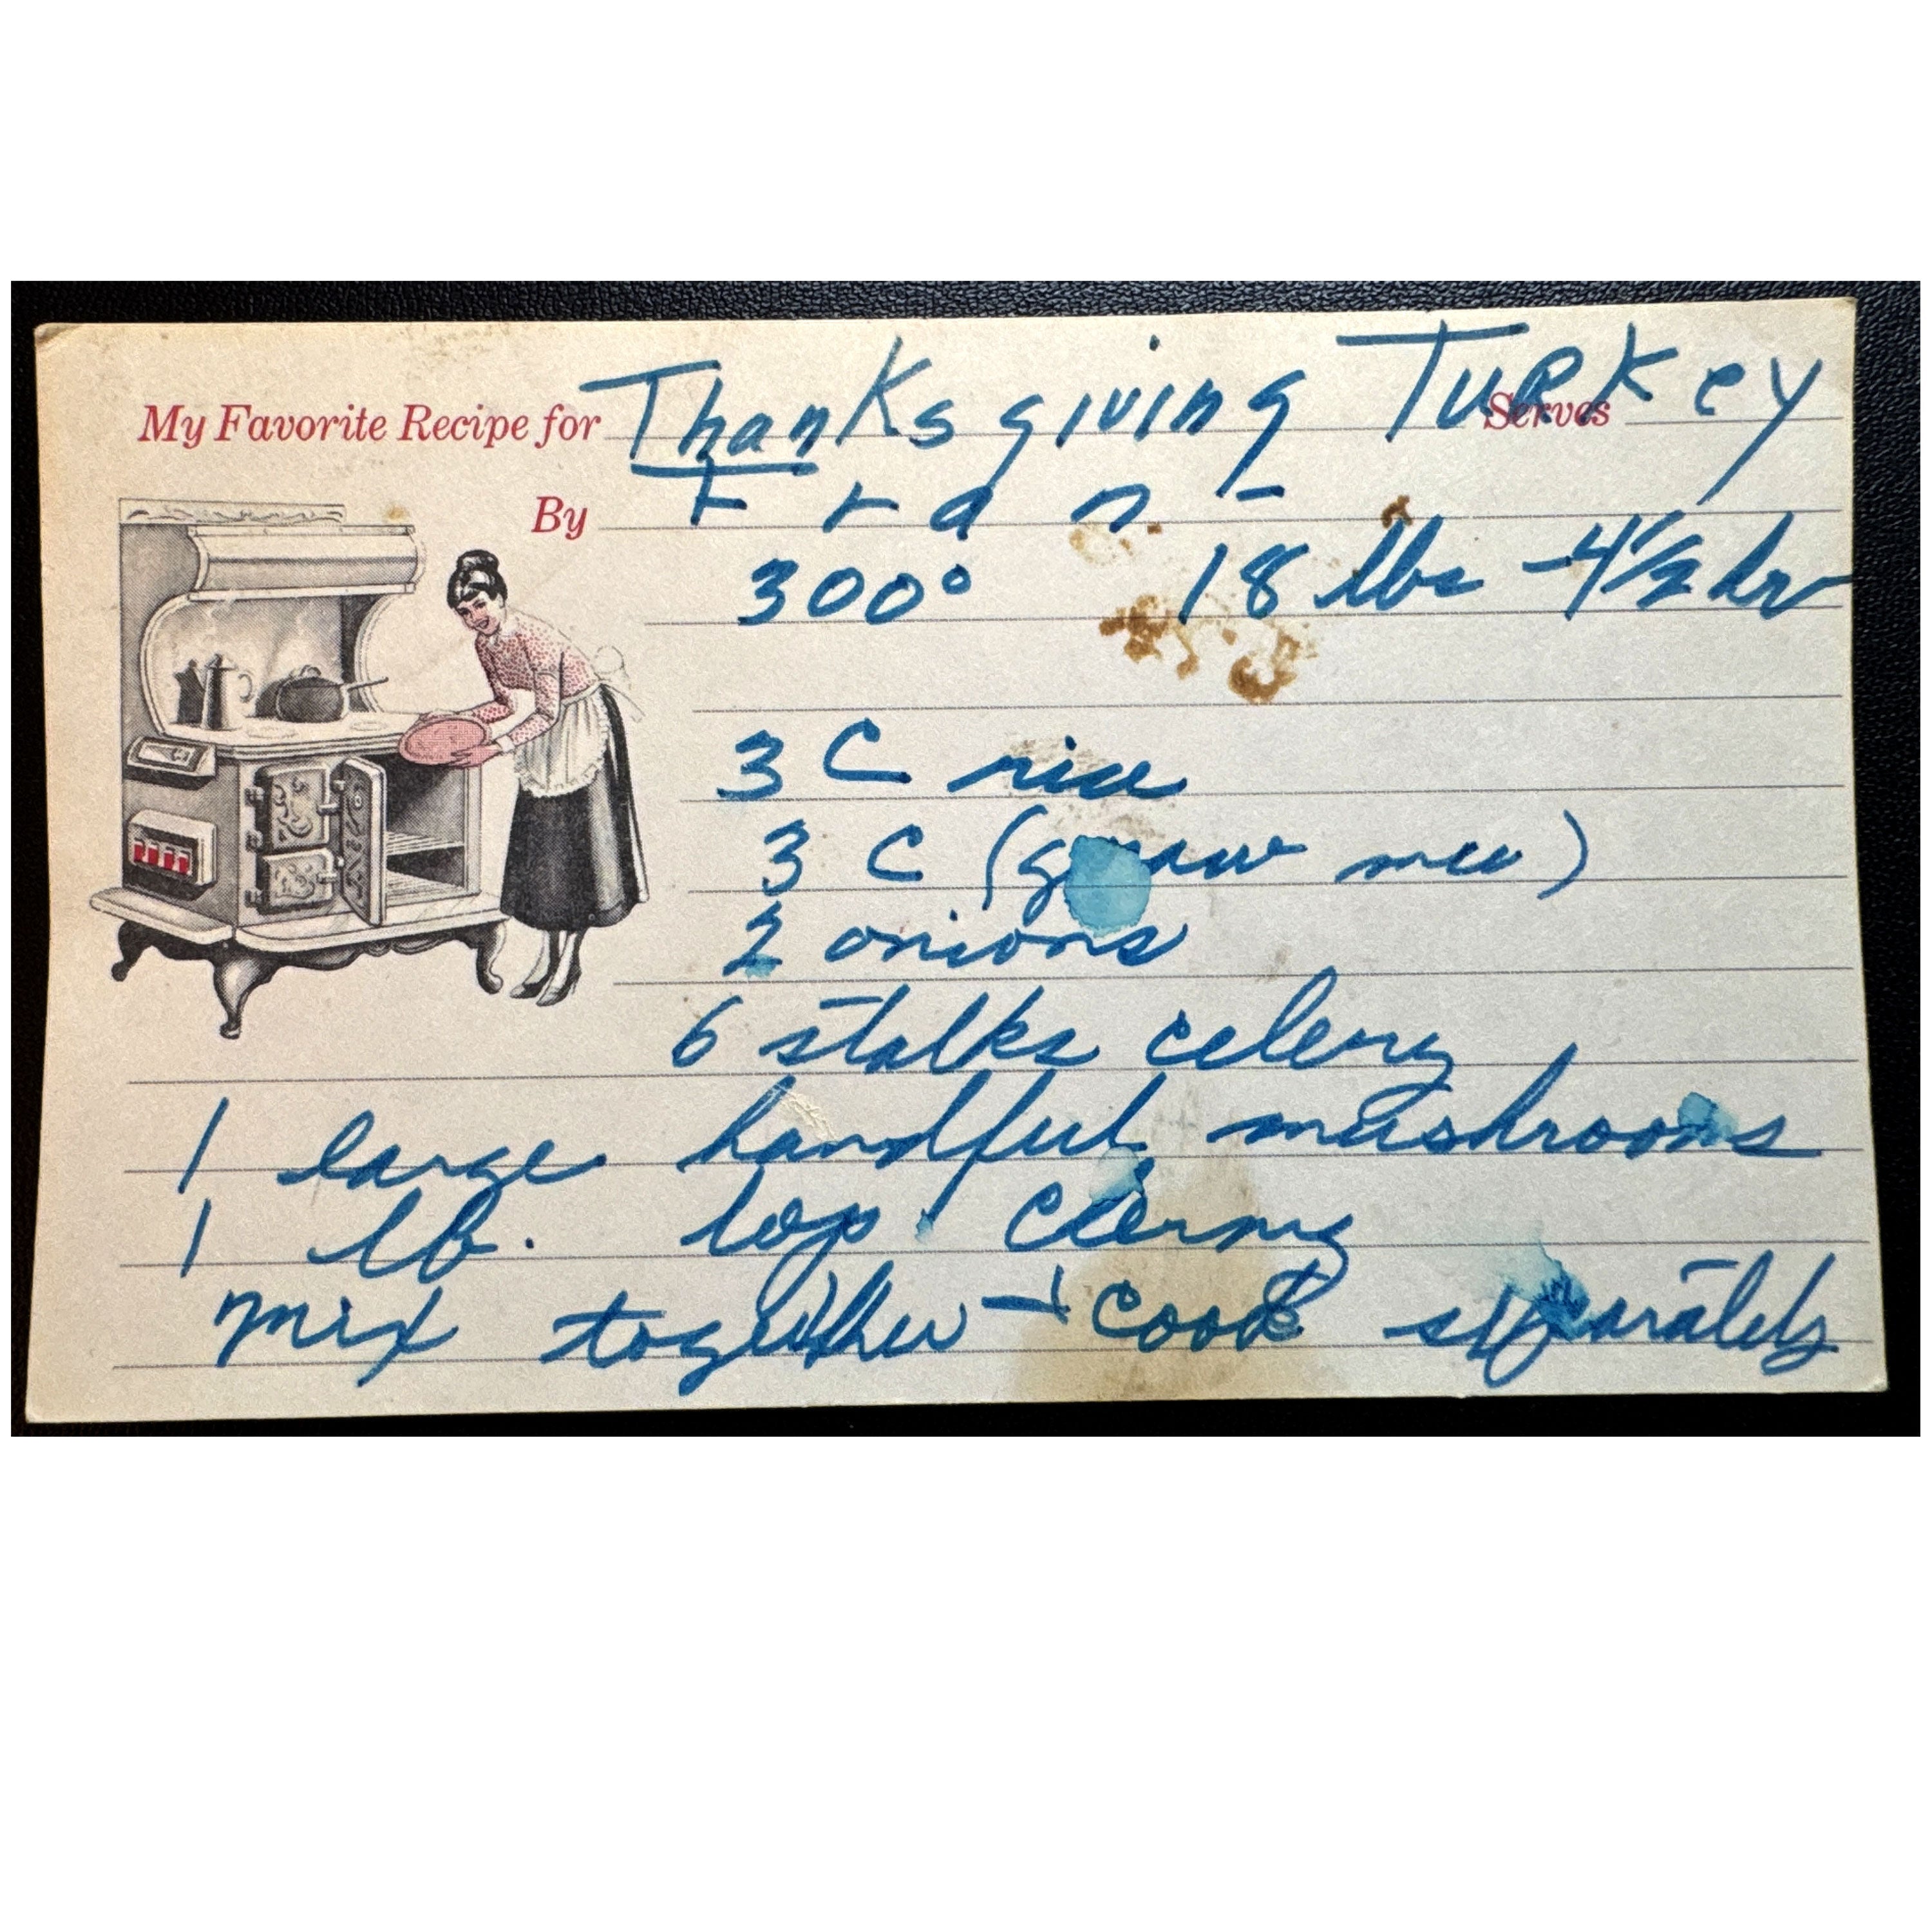 My Favorite Recipe for Thanksgiving Turkey Serves
By Fran -
300° 18 lbs - 4 1/2 hr
3 C rice
3 C ( )
2 onions
6 stalks celery
1 large handful mushrooms
1 lb. top
mix together + cook separately